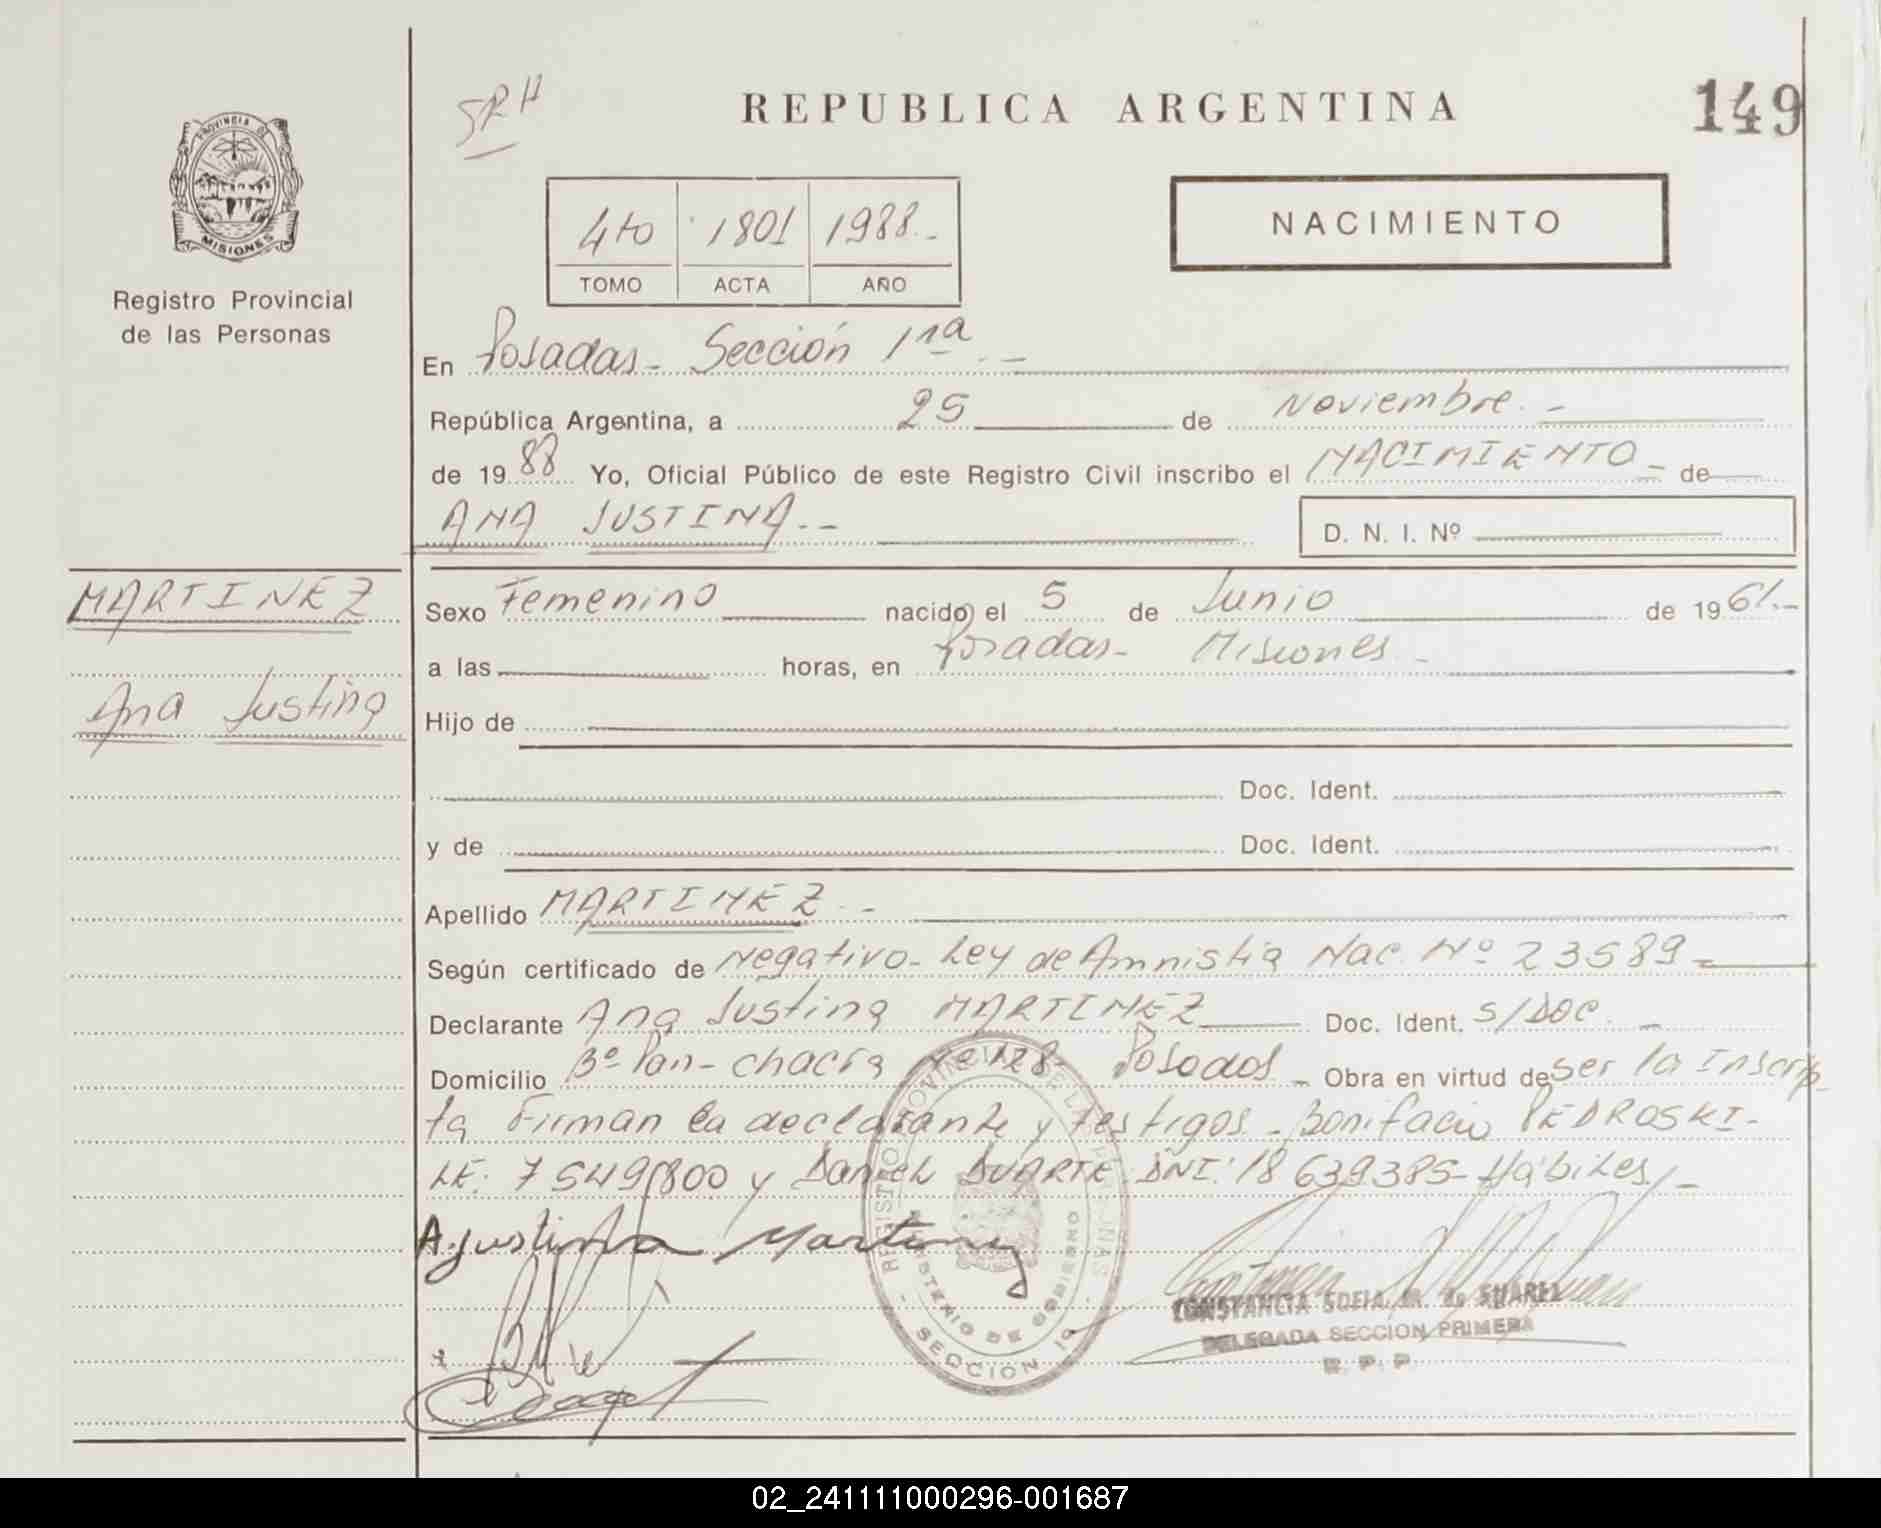 SRH
REPUBLICA ARGENTINA
149
PROVINCIA DE
MISIONES
Registro Provincial
de las Personas
4to 1801 1988.-
TOMO ACTA AÑO
NACIMIENTO
En Posadas - Sección 1ra. -
República Argentina, a 25 de Noviembre. -
de 1988 Yo, Oficial Público de este Registro Civil inscribo el NACIMIENTO - de
ANA JUSTINA. -
D. N. I. Nº
MARTINEZ
Ana Justina
Sexo Femenino nacido el 5 de Junio de 1961.-
a las horas, en Posadas - Misiones -
Hijo de
Doc. Ident.
y de Doc. Ident.
Apellido MARTINEZ. -
Según certificado de Negativo - Ley de Amnistia Nac. Nº 23589 -
Declarante Ana Justina MARTINEZ Doc. Ident. S/DOC. -
Domicilio Bº Pan - Chacra Nº 128 - Posadas - Obra en virtud de ser la Inscrip-
ta Firman la declarante y testigos - Bonifacio PEDROSKI -
LE: 7549800 y Daniel DUARTE DNI: 18639385 - Hábiles. -
Agustina Martinez
REGISTRO PROVINCIAL DE LAS PERSONAS
MINISTERIO DE GOBIERNO
- SECCION 1a -
CONSTANCIA SOFIA M. de SUAREZ
DELEGADA SECCION PRIMERA
R. P. P.
02_241111000296-001687